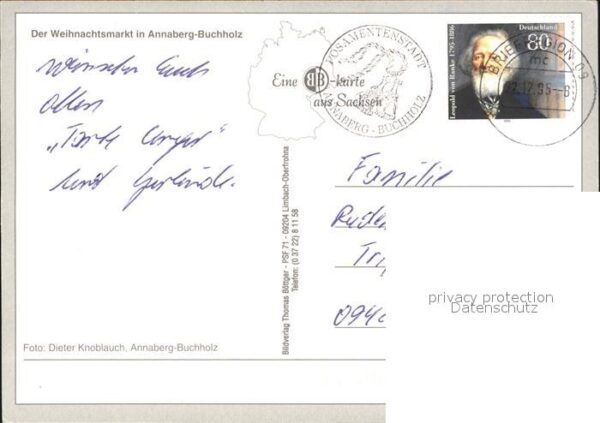 Der Weihnachtsmarkt in Annaberg-Buchholz
wünschen Euch
allen
"Tante Inge"
und Gerlinde.
Foto: Dieter Knoblauch, Annaberg-Buchholz
Eine BB-karte
aus Sachsen
POSAMENTENSTADT
ANNABERG-BUCHHOLZ
Bildverlag Thomas Böttger - PSF 71 - 09204 Limbach-Oberfrohna
Telefon: (0 37 22) 8 11 58
Leopold von Ranke 1795-1886
Deutschland
80
BRIEFREGION 09
mc
12.95
Familie
094
privacy protection
Datenschutz